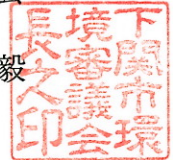 毅
下関市環
境審議会
長之印